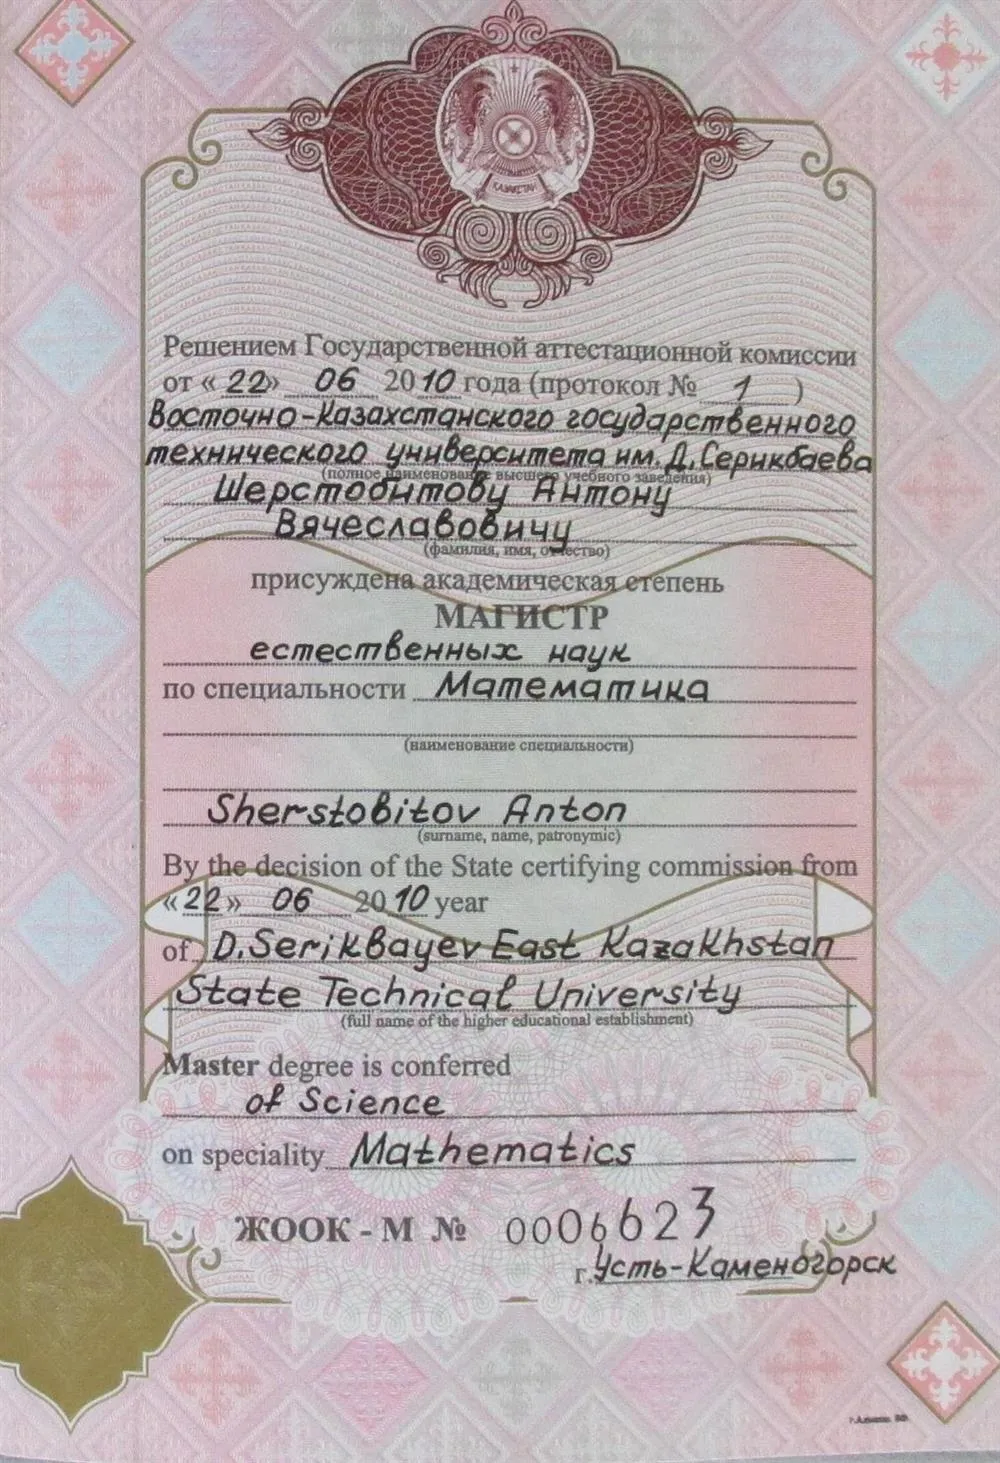 ҚАЗАҚСТАН
Решением Государственной аттестационной комиссии
от « 22» 06 2010 года (протокол № 1 )
Восточно-Казахстанского государственного
технического университета им. Д.Серикбаева
(полное наименование высшего учебного заведения)
Шерстобитову Антону
Вячеславовичу
(фамилия, имя, отчество)
присуждена академическая степень
МАГИСТР
естественных наук
по специальности Математика
(наименование специальности)
Sherstobitov Anton
(surname, name, patronymic)
By the decision of the State certifying commission from
«22» 06 2010 year
of D.Serikbayev East Kazakhstan
State Technical University
(full name of the higher educational establishment)
Master degree is conferred
of Science
on speciality Mathematics
ЖООК - М № 0006623
г.Усть-Каменогорск